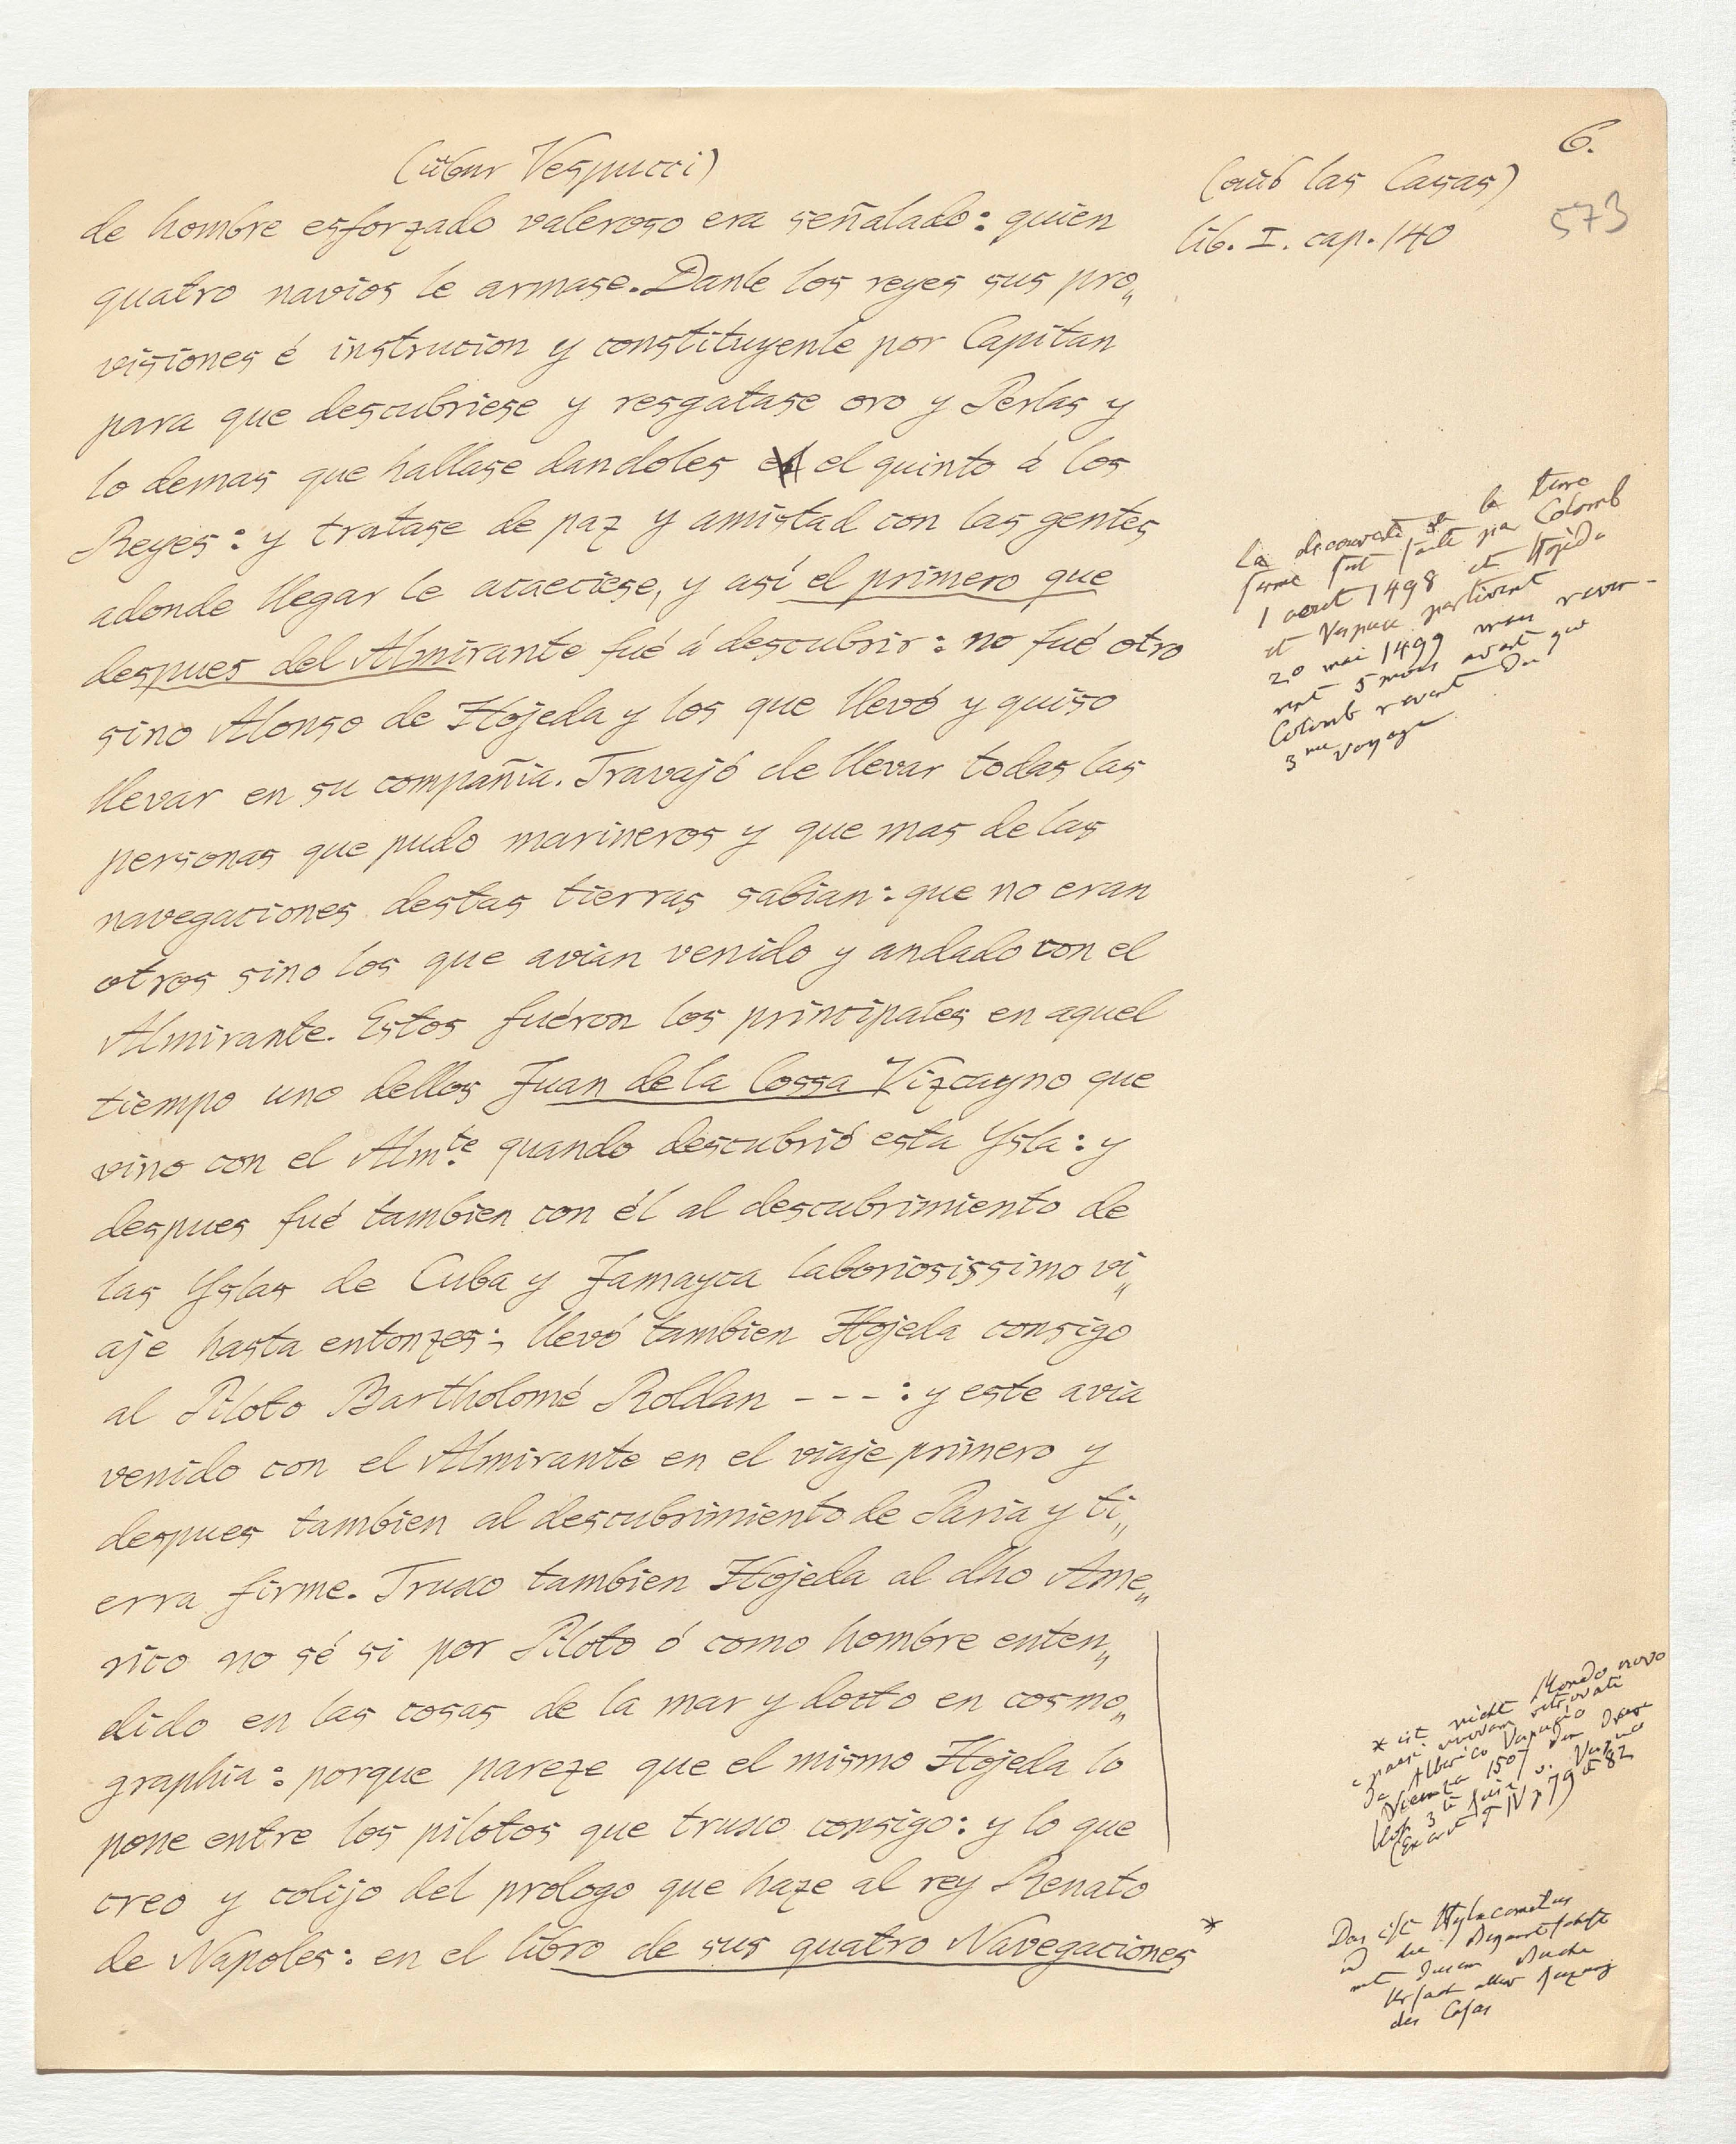 6.
(über Vespucci)
(aus las Casas)
573
lib. I. cap. 140
de hombre esforzado valeroso era señalado: quien
quatro navios le armase. Danle los reyes sus pro„
visiones é instrucion y constituyenle por Capitan
para que descubriese y resgatase oro y Perlas y
lo demas que hallase dandoles el quinto á los
Reyes: y tratase de paz y amistad con las gentes
adonde llegar le acaeciese, y así el primero que
despues del Almirante fué á descubrir: no fué otro
sino Alonso de Hojeda y los que llevó y quiso
llevar en su compañia. Travajó de llevar todas las
personas que pudo marineros y que mas de las
navegaciones destas tierras sabian: que no eran
otros sino los que avian venido y andado con el
Almirante. Estos fuéron los principales en aquel
tiempo uno dellos Juan de la Cossa Vizcayno que
vino con el Almte. quando descubrió esta Ysla: y
despues fué tambien con él al descubrimiento de
las Yslas de Cuba y Jamayca laboriosissimo vi„
aje hasta entonzes; llevó tambien Hojeda consigo
al Piloto Bartholomé Roldan - - - : y este avia
venido con el Almirante en el viaje primero y
despues tambien al descubrimiento de Paria y ti„
erra firme. Truxo tambien Hojeda al dho Ame„
rico no sé si por Piloto ó como hombre enten„
dido en las cosas de la mar y docto en cosmo„
graphia: porque pareze que el mismo Hojeda lo
pone entre los pilotos que truxo consigo: y lo que
creo y colijo del prologo que haze al rey Renato
de Napoles: en el libro de sus quatro Navegaciones *
la decouverte de la terre
ferme fut faite par Colomb
1 aout 1498 et Hojeda
et Vespuce partirent
20 mai 1499 mais revin-
rent 5 mois avant que
Colomb revint du
3me voyage
* ist nicht Mondo novo
e paesi novam. retrovati
da Alberico Vespuzio
Vicenza 1507
3te
T IV p 79 a 82
Das ist Hylacomilus
mit
des Casas